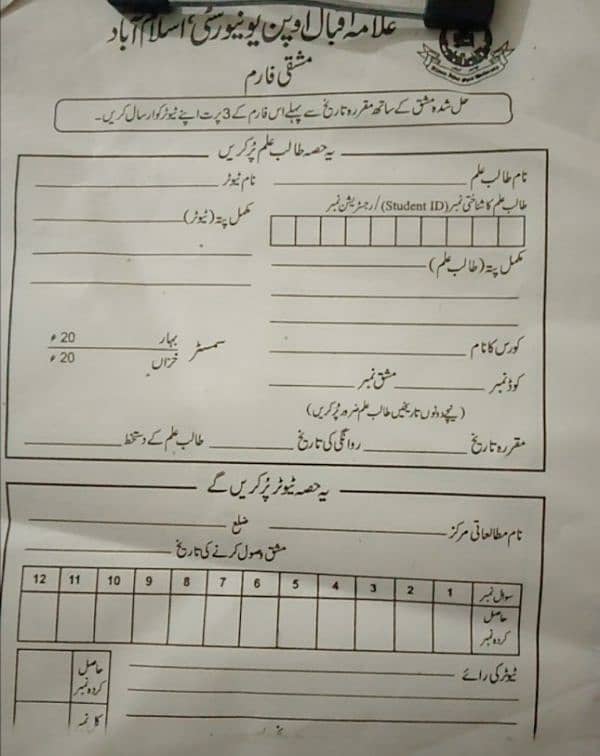 علامہ اقبال اوپن یونیورسٹی، اسلام آباد
مشقی فارم
حل شدہ مشق کے ساتھ مقررہ تاریخ سے پہلے اس فارم کے 3 پرت اپنے ٹیوٹر کو ارسال کریں۔
یہ حصہ طالب علم پُر کریں
نام طالب علم نام ٹیوٹر
طالب علم کا شناختی نمبر (Student ID)/رجسٹریشن نمبر
مکمل پتہ (ٹیوٹر)
مکمل پتہ (طالب علم)
کورس کا نام
سمسٹر بہار 20ء
خزاں 20ء
کوڈ نمبر مشق نمبر
(نیچے دونوں تاریخیں طالب علم ضرور پُر کریں)
مقررہ تاریخ روانگی کی تاریخ طالب علم کے دستخط
یہ حصہ ٹیوٹر پُر کریں گے
نام مطالعاتی مرکز ضلع
مشق وصول کرنے کی تاریخ
سوال نمبر 1 2 3 4 5 6 7 8 9 10 11 12
حاصل کردہ نمبر
ٹیوٹر کی رائے
حاصل کردہ نمبر
کل نمبر